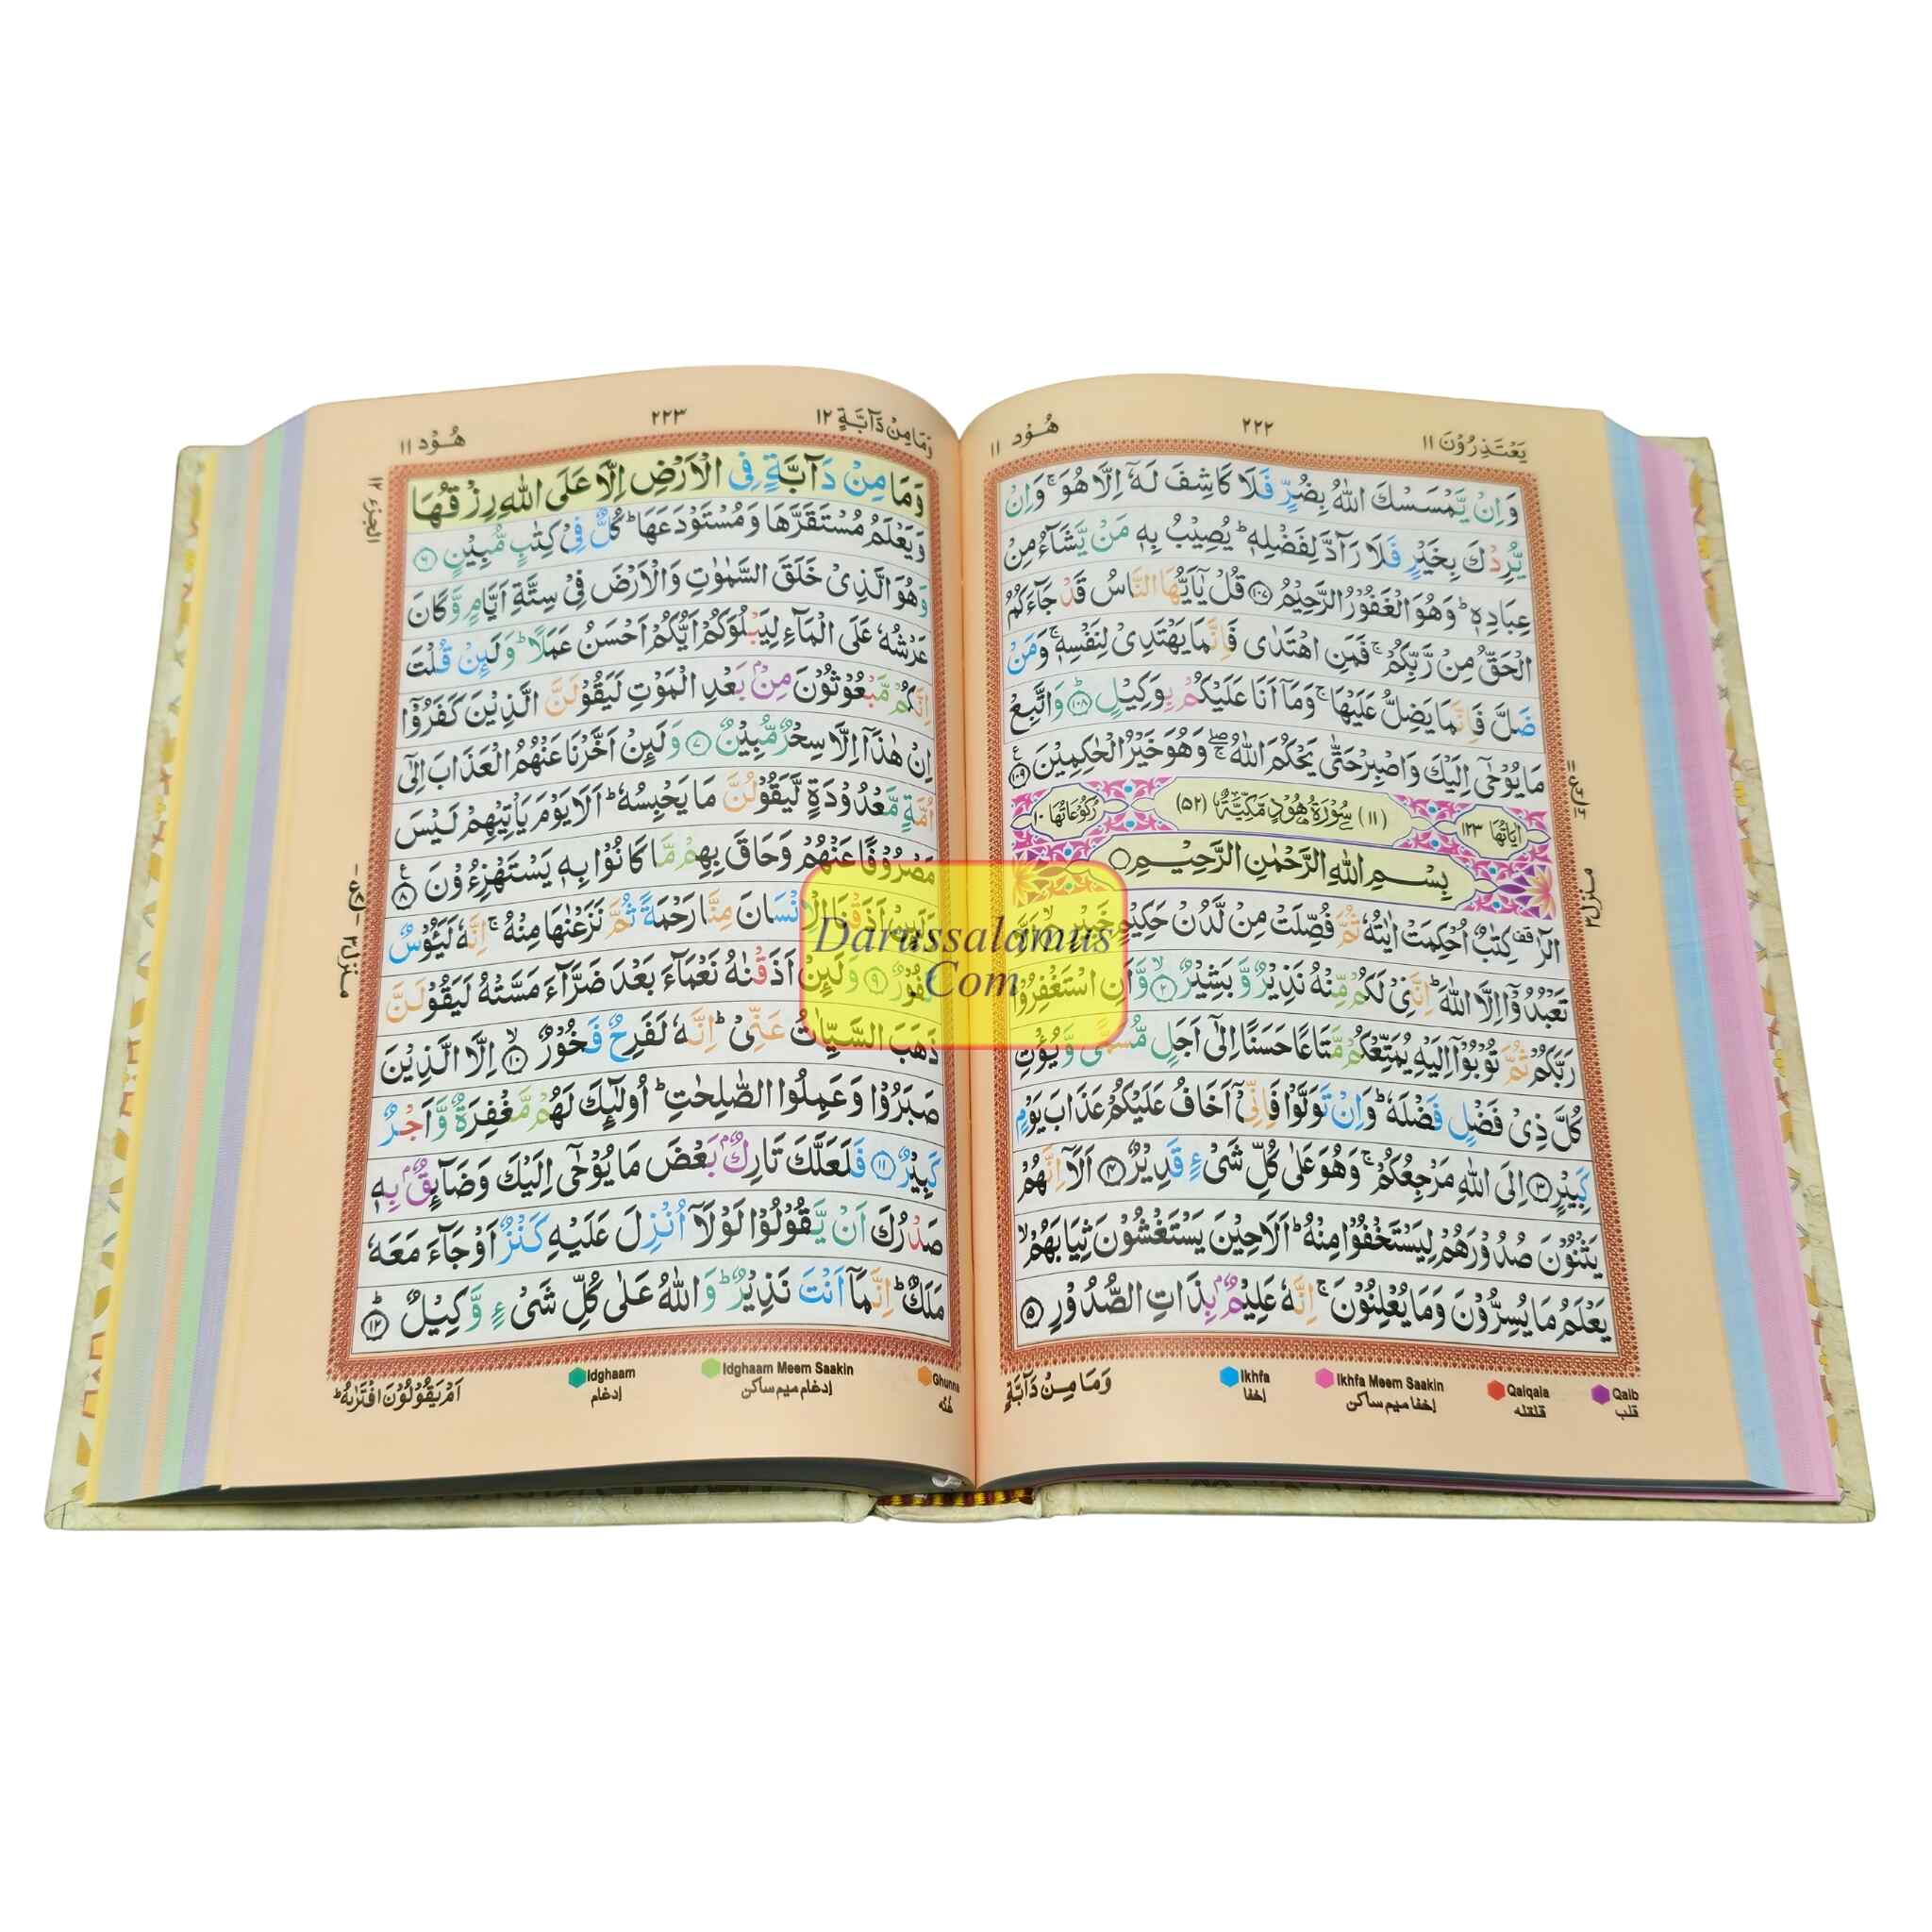 يَعْتَذِرُوْنَ ١١
٢٢٢
هُوْد ١١
وَاِنْ يَّمْسَسْكَ اللّٰهُ بِضُرٍّ فَلَا كَاشِفَ لَهٗۤ اِلَّا هُوَ ۚ وَاِنْ
يُّرِدْكَ بِخَيْرٍ فَلَا رَآدَّ لِفَضْلِهٖ ؕ يُصِيْبُ بِهٖ مَنْ يَّشَآءُ مِنْ
عِبَادِهٖ ؕ وَهُوَ الْغَفُوْرُ الرَّحِيْمُ ١٠٧ قُلْ يٰۤاَيُّهَا النَّاسُ قَدْ جَآءَكُمُ
الْحَقُّ مِنْ رَّبِّكُمْ ۚ فَمَنِ اهْتَدٰى فَاِنَّمَا يَهْتَدِىْ لِنَفْسِهٖ ۚ وَمَنْ
ضَلَّ فَاِنَّمَا يَضِلُّ عَلَيْهَا ۚ وَمَاۤ اَنَا عَلَيْكُمْ بِوَكِيْلٍ ؕ ١٠٨ وَاتَّبِعْ
مَا يُوْحٰٓى اِلَيْكَ وَاصْبِرْ حَتّٰى يَحْكُمَ اللّٰهُ ۖۚ وَهُوَ خَيْرُ الْحٰكِمِيْنَ ١٠٩
اٰيَاتُهَا ١٢٣ (١١) سُوْرَةُ هُوْدٍ مَّكِّيَّةٌ (٥٢) رُكُوْعَاتُهَا ١٠
بِسْمِ اللّٰهِ الرَّحْمٰنِ الرَّحِيْمِ
الٓرٰ ۟ كِتٰبٌ اُحْكِمَتْ اٰيٰتُهٗ ثُمَّ فُصِّلَتْ مِنْ لَّدُنْ حَكِيْمٍ خَبِيْرٍ ۙ ١ اَلَّا
تَعْبُدُوْۤا اِلَّا اللّٰهَ ؕ اِنَّنِىْ لَكُمْ مِّنْهُ نَذِيْرٌ وَّبَشِيْرٌ ۙ ٢ وَّاَنِ اسْتَغْفِرُوْا
رَبَّكُمْ ثُمَّ تُوْبُوْۤا اِلَيْهِ يُمَتِّعْكُمْ مَّتَاعًا حَسَنًا اِلٰٓى اَجَلٍ مُّسَمًّى وَّيُؤْتِ
كُلَّ ذِىْ فَضْلٍ فَضْلَهٗ ؕ وَاِنْ تَوَلَّوْا فَاِنِّىْۤ اَخَافُ عَلَيْكُمْ عَذَابَ يَوْمٍ
كَبِيْرٍ ٣ اِلَى اللّٰهِ مَرْجِعُكُمْ ۚ وَهُوَ عَلٰى كُلِّ شَىْءٍ قَدِيْرٌ ٤ اَلَاۤ اِنَّهُمْ
يَثْنُوْنَ صُدُوْرَهُمْ لِيَسْتَخْفُوْا مِنْهُ ؕ اَلَا حِيْنَ يَسْتَغْشُوْنَ ثِيَابَهُمْ ۙ
يَعْلَمُ مَا يُسِرُّوْنَ وَمَا يُعْلِنُوْنَ ۚ اِنَّهٗ عَلِيْمٌۢ بِذَاتِ الصُّدُوْرِ ٥
منزل ٣
وَمَا مِنْ دَآبَّةٍ
Ikhfa
إخفا
Ikhfa Meem Saakin
إخفا ميم ساكن
Qalqala
قلقله
Qalb
قلب
وَمَا مِنْ دَآبَّةٍ ١٢
٢٢٣
هُوْد ١١
الجزء ١٢
وَمَا مِنْ دَآبَّةٍ فِى الْاَرْضِ اِلَّا عَلَى اللّٰهِ رِزْقُهَا
وَيَعْلَمُ مُسْتَقَرَّهَا وَمُسْتَوْدَعَهَا ؕ كُلٌّ فِىْ كِتٰبٍ مُّبِيْنٍ ٦
وَهُوَ الَّذِىْ خَلَقَ السَّمٰوٰتِ وَالْاَرْضَ فِىْ سِتَّةِ اَيَّامٍ وَّكَانَ
عَرْشُهٗ عَلَى الْمَآءِ لِيَبْلُوَكُمْ اَيُّكُمْ اَحْسَنُ عَمَلًا ؕ وَلَئِنْ قُلْتَ
اِنَّكُمْ مَّبْعُوْثُوْنَ مِنْۢ بَعْدِ الْمَوْتِ لَيَقُوْلَنَّ الَّذِيْنَ كَفَرُوْۤا
اِنْ هٰذَاۤ اِلَّا سِحْرٌ مُّبِيْنٌ ٧ وَلَئِنْ اَخَّرْنَا عَنْهُمُ الْعَذَابَ اِلٰٓى
اُمَّةٍ مَّعْدُوْدَةٍ لَّيَقُوْلُنَّ مَا يَحْبِسُهٗ ؕ اَلَا يَوْمَ يَاْتِيْهِمْ لَيْسَ
مَصْرُوْفًا عَنْهُمْ وَحَاقَ بِهِمْ مَّا كَانُوْا بِهٖ يَسْتَهْزِءُوْنَ ٨
وَلَئِنْ اَذَقْنَا الْاِنْسَانَ مِنَّا رَحْمَةً ثُمَّ نَزَعْنٰهَا مِنْهُ ۚ اِنَّهٗ لَيَـُٔوْسٌ
كَفُوْرٌ ٩ وَلَئِنْ اَذَقْنٰهُ نَعْمَآءَ بَعْدَ ضَرَّآءَ مَسَّتْهُ لَيَقُوْلَنَّ
ذَهَبَ السَّيِّاٰتُ عَنِّىْ ؕ اِنَّهٗ لَفَرِحٌ فَخُوْرٌ ۙ ١٠ اِلَّا الَّذِيْنَ
صَبَرُوْا وَعَمِلُوا الصّٰلِحٰتِ ؕ اُولٰٓئِكَ لَهُمْ مَّغْفِرَةٌ وَّاَجْرٌ
كَبِيْرٌ ١١ فَلَعَلَّكَ تَارِكٌۢ بَعْضَ مَا يُوْحٰٓى اِلَيْكَ وَضَآئِقٌۢ بِهٖ
صَدْرُكَ اَنْ يَّقُوْلُوْا لَوْلَاۤ اُنْزِلَ عَلَيْهِ كَنْزٌ اَوْ جَآءَ مَعَهٗ
مَلَكٌ ؕ اِنَّمَاۤ اَنْتَ نَذِيْرٌ ؕ وَاللّٰهُ عَلٰى كُلِّ شَىْءٍ وَّكِيْلٌ ؕ ١٢
منزل ٣
اَمْ يَقُوْلُوْنَ افْتَرٰىهُ ؕ
Ghunna
غنه
Idghaam Meem Saakin
إدغام ميم ساكن
Idghaam
إدغام
Darussalamus
Com